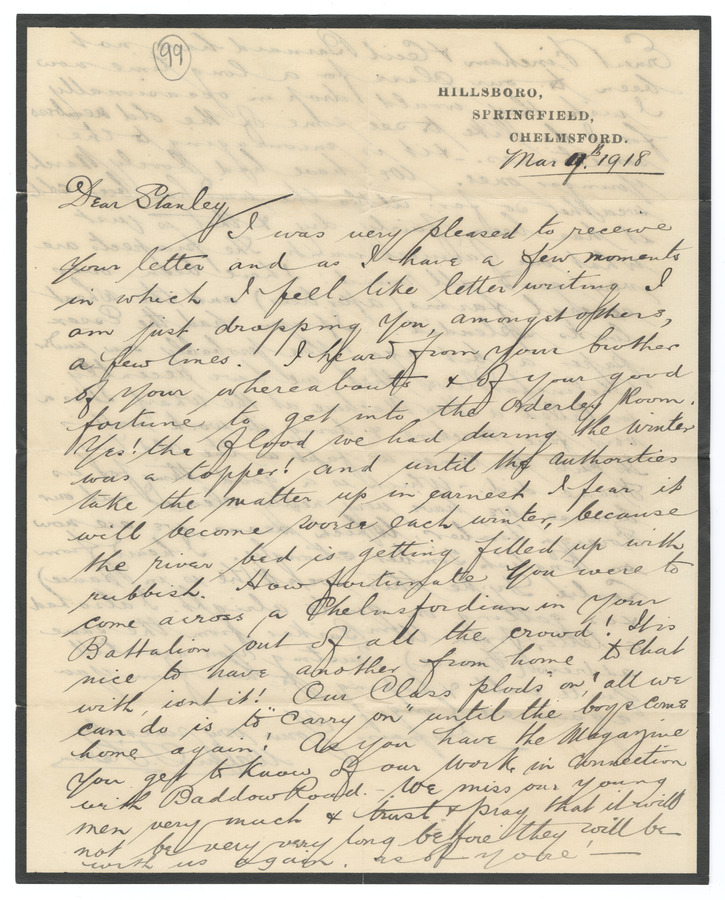 99
HILLSBORO,
SPRINGFIELD,
CHELMSFORD.
Mar 9th. 1918
Dear Stanley
I was very pleased to receive
your letter and as I have a few moments
in which I feel like letter writing I
am just dropping you, amongst others,
a few lines. I heard from your brother
of your whereabouts & of your good
fortune to get into the Orderley Room.
Yes! the flood we had during the winter
was a topper! and until the authorities
take the matter up in earnest I fear it
will become worse each winter, because
the river bed is getting filled up with
rubbish. How fortunate you were to
come across a Chelmsfordian in your
Battalion out of all the crowd! It is
nice to have another from home to chat
with, isnt it! Our Class "plods" on, all we
can do is to "carry on" until the boys come
home again! As you have the Magazine
you get to know of our work, in connection
with Baddow Road. - We miss our young
men very much & trust & pray that it will
not be very very long before they will be
with us again. as of yore! —